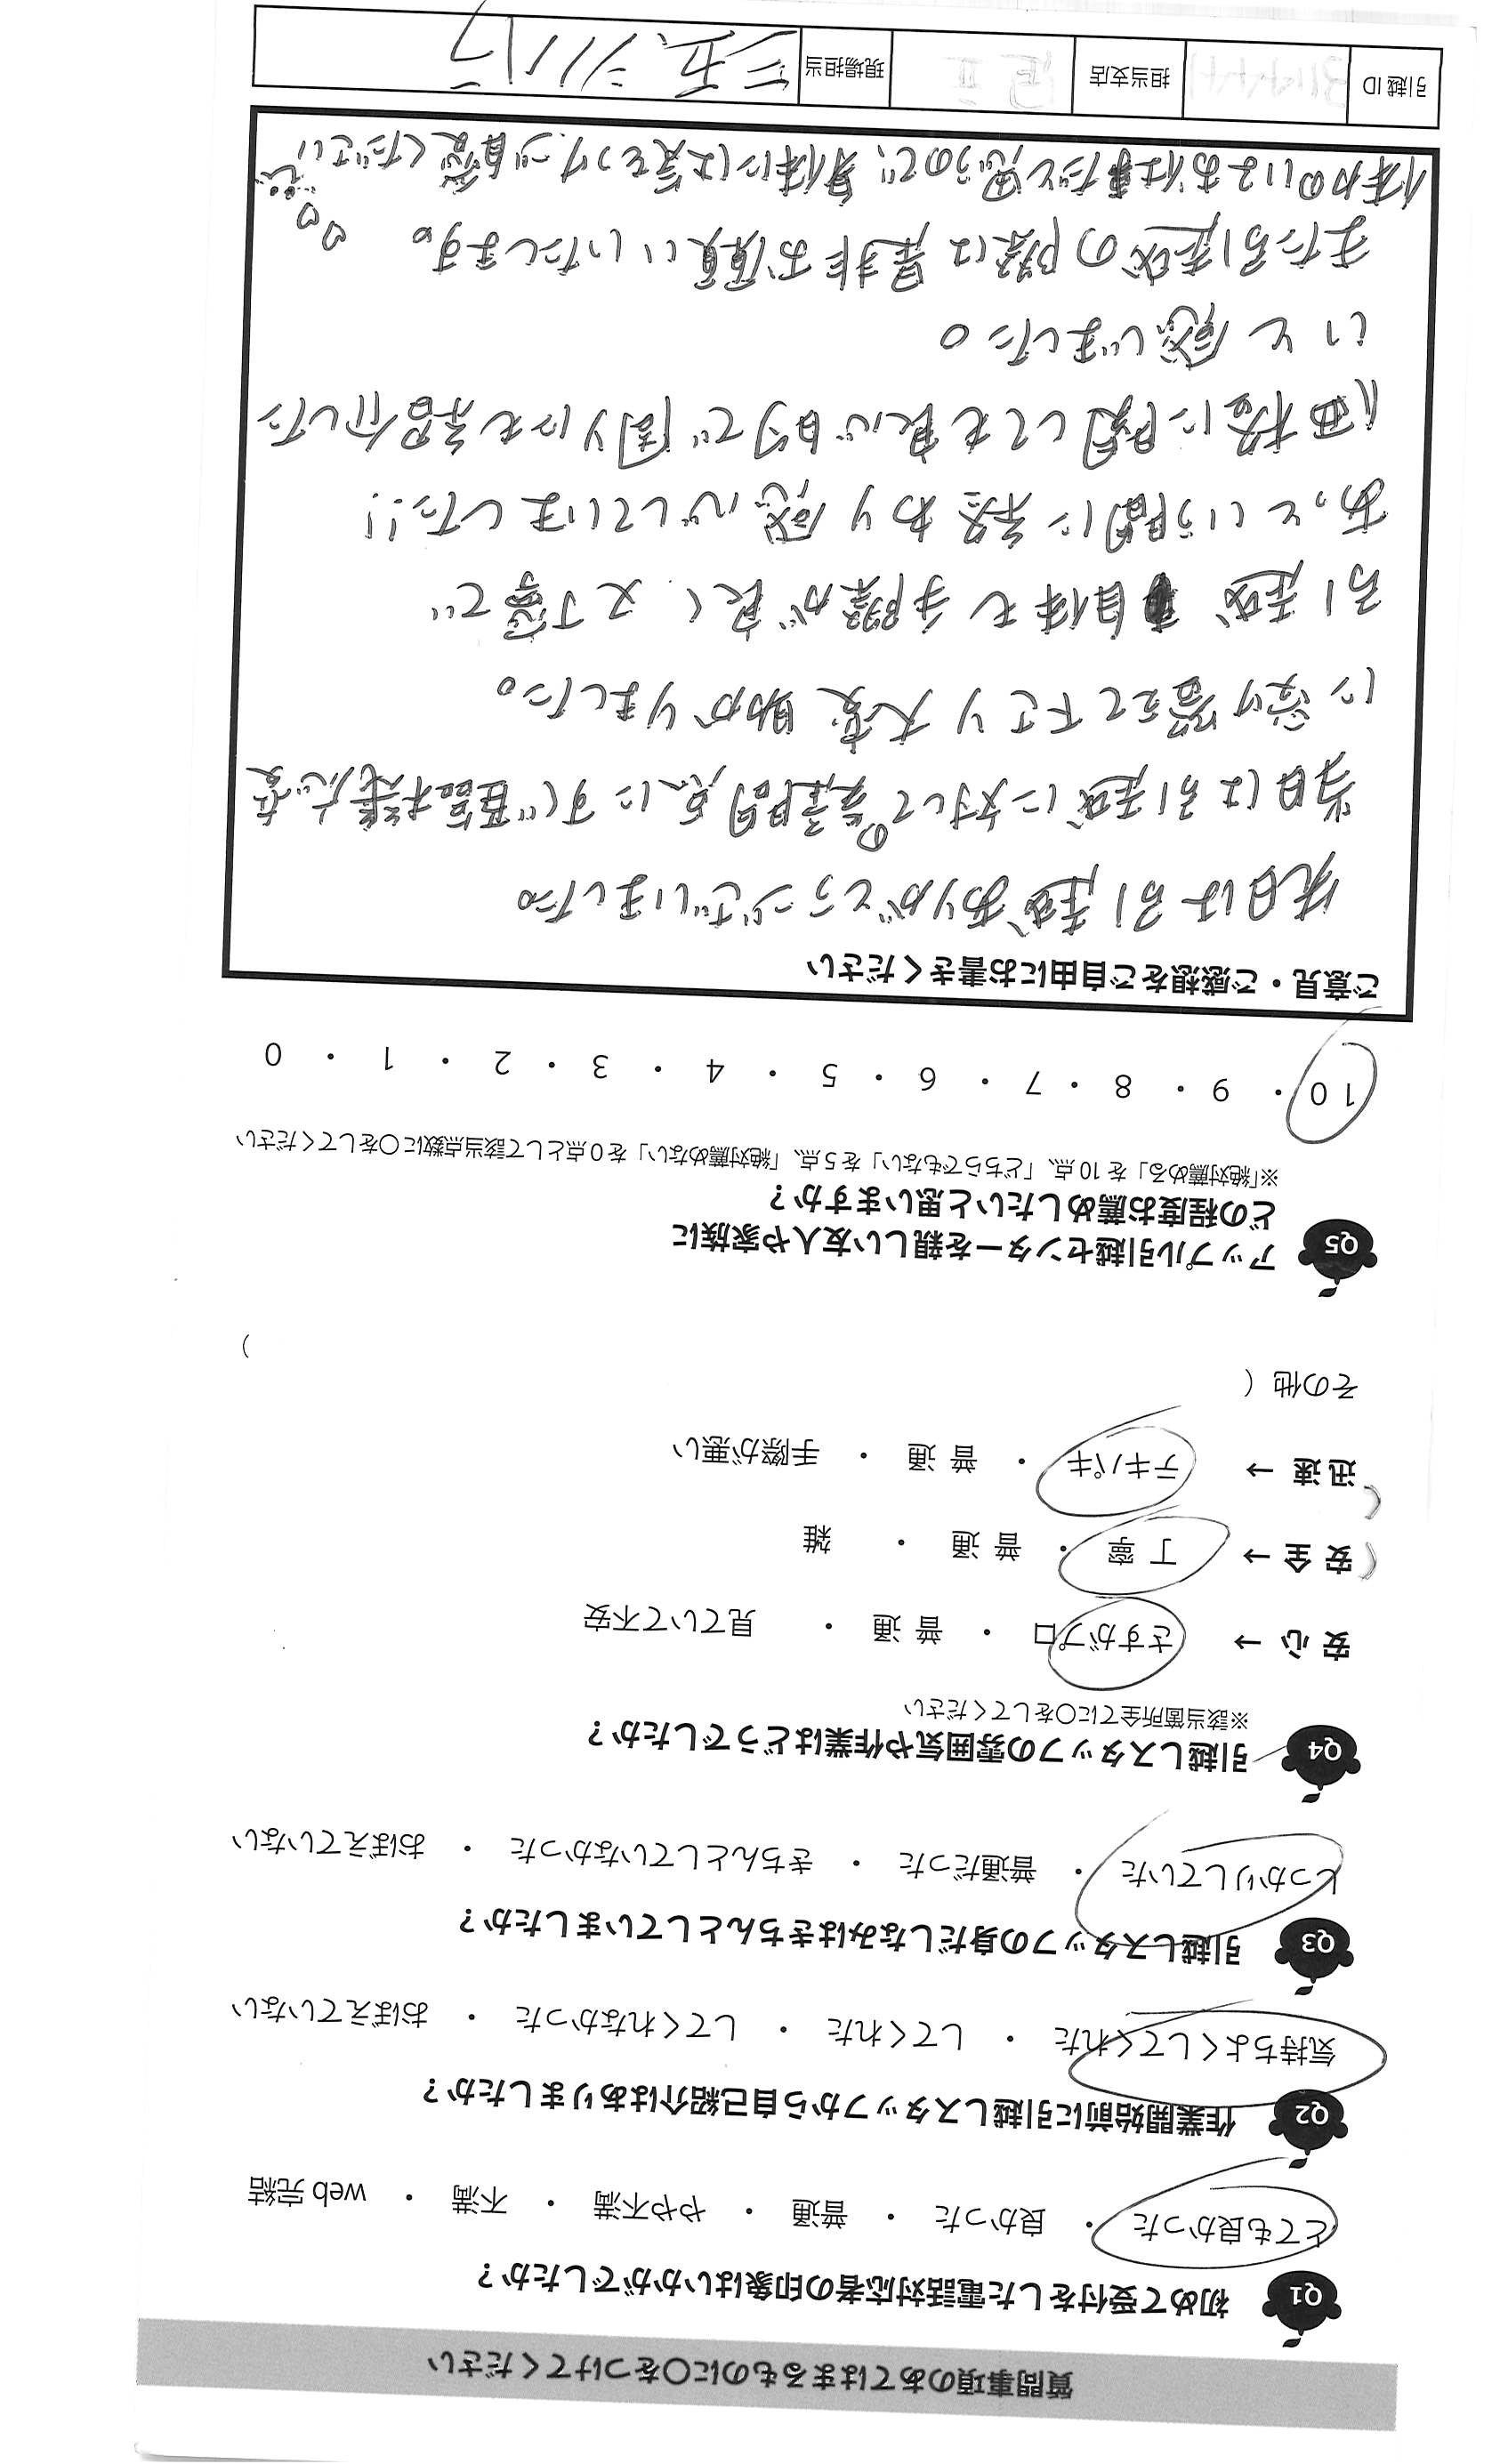 質問事項のあてはまるものに〇をつけてください
Q1 初めて受付をした電話対応者の印象はいかがでしたか？
とても良かった ・ 良かった ・ 普通 ・ やや不満 ・ 不満 ・ web 完結
Q2 作業開始前に引越しスタッフから自己紹介はありましたか？
気持ちよくしてくれた ・ してくれた ・ してくれなかった ・ おぼえていない
Q3 引越しスタッフの身だしなみはきちんとしていましたか？
しっかりしていた ・ 普通だった ・ きちんとしていなかった ・ おぼえていない
Q4 引越しスタッフの雰囲気や作業はどうでしたか？
※該当箇所全てに〇をしてください
安 心 → さすがプロ ・ 普 通 ・ 見ていて不安
安 全 → 丁 寧 ・ 普 通 ・ 雑
迅 速 → テキパキ ・ 普 通 ・ 手際が悪い
その他（ ）
Q5 アップル引越センターを親しい友人や家族に
どの程度お薦めしたいと思いますか？
※「絶対薦める」を 10 点、「どちらでもない」を 5 点、「絶対薦めない」を 0 点として該当点数に〇をしてください
10 ・ 9 ・ 8 ・ 7 ・ 6 ・ 5 ・ 4 ・ 3 ・ 2 ・ 1 ・ 0
ご意見・ご感想をご自由にお書きください
先日は引越ありがとうございました。
当日は引越に対しての疑問点にすぐ臨機応変
に受け答えて下さり大変助かりました。
引越 自体も手際が良く又丁寧で
あっという間に終わり感心していました!!
価格に関しても良心的で周りにも紹介した
いと感じました。
また引越の際は是非お願いいたします。
体力のいるお仕事だと思うので、身体には気をつけ、ご自愛ください
引越 ID
担当支店
現場担当